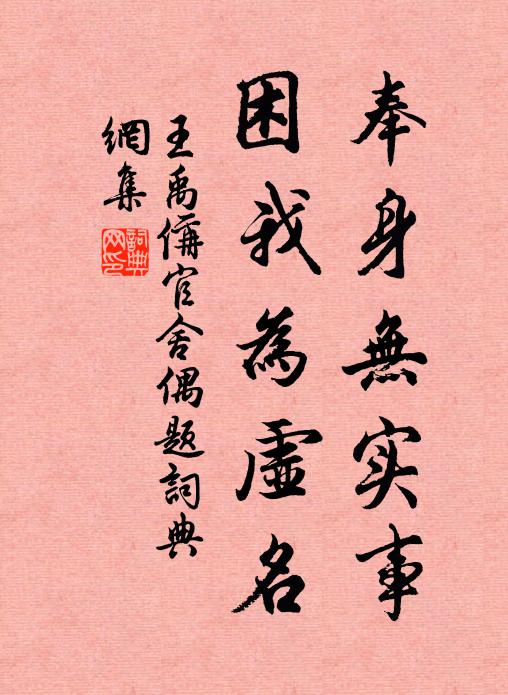 奉身無实事
困我為虛名
王禹偁官舍偶題詞典
網集
詞典
网印